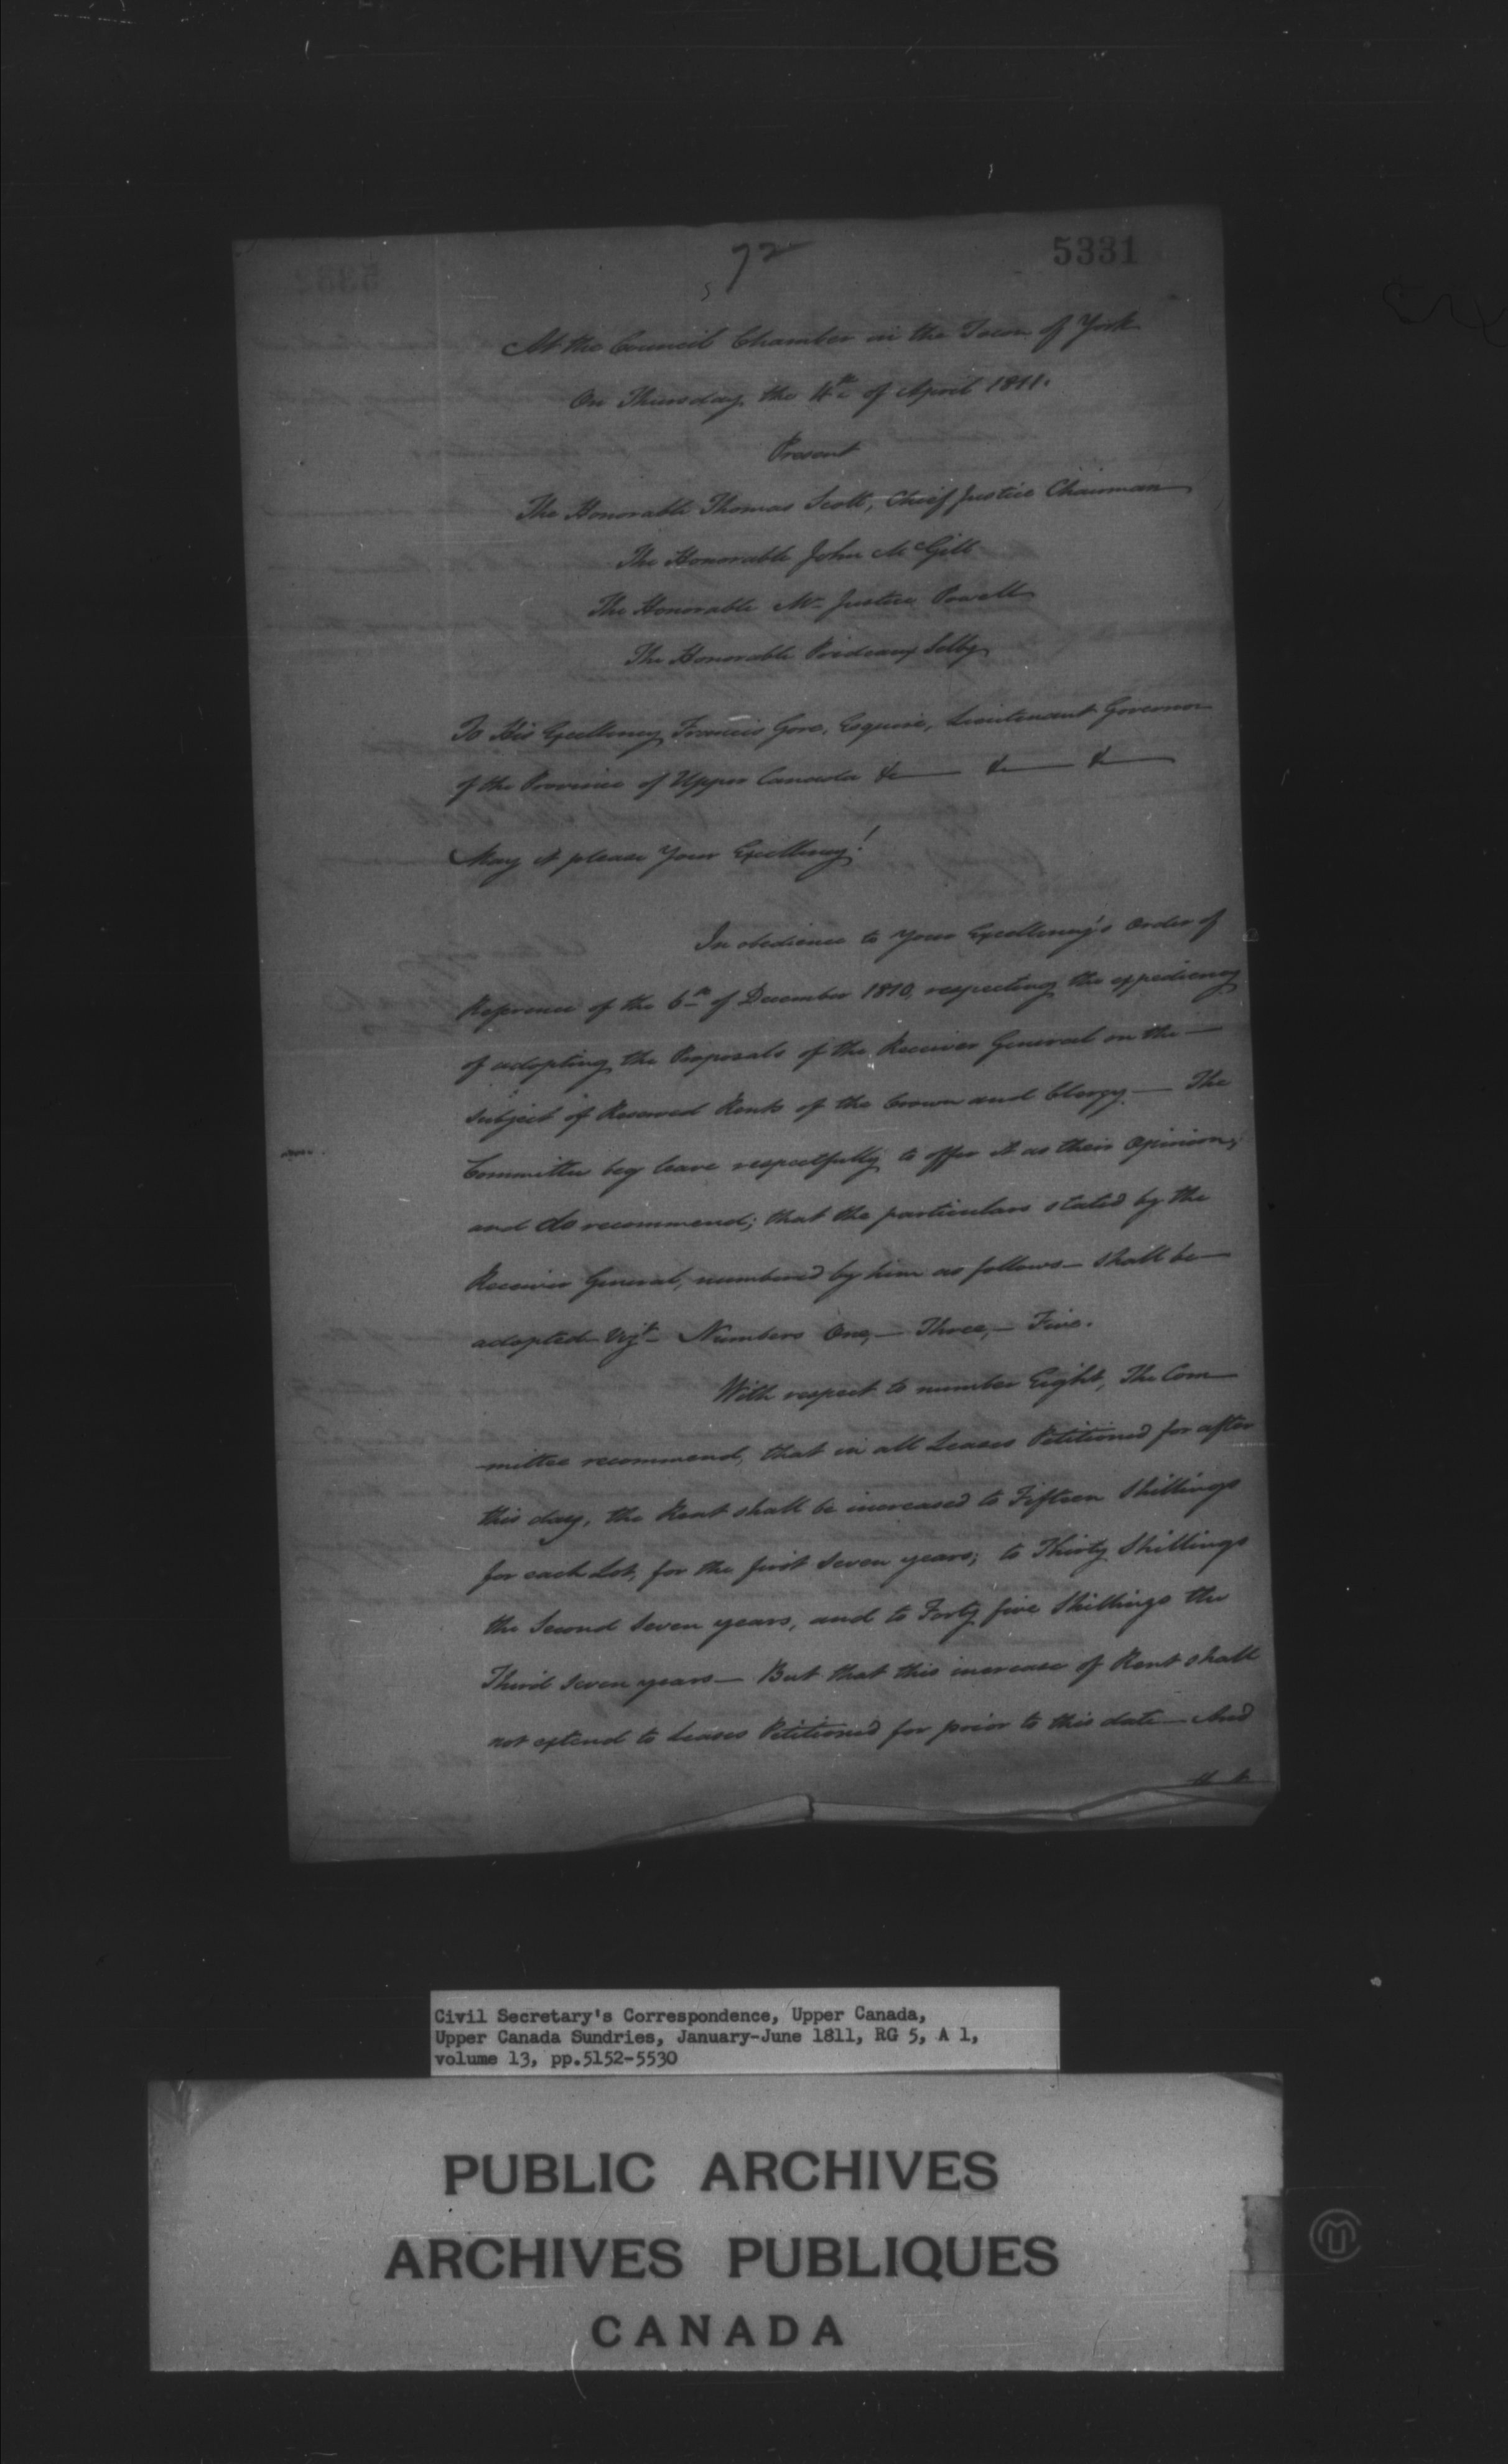 72
5331
At the Council Chamber in the Town of York
On Thursday the 4th of April 1811.
Present
The Honorable Thomas Scott, Chief Justice Chairman
The Honorable John McGill
The Honorable Mr Justice Powell
The Honorable Prideaux Selby
To His Excellency Francis Gore, Esquire, Lieutenant Governor
of the Province of Upper Canada &c — &c — &c —
May it please Your Excellency!
In obedience to Your Excellency's Order of
Reference of the 6th of December 1810, respecting the expediency
of adopting the Proposals of the Receiver General on the —
subject of Reserved Rents of the Crown and Clergy — The
Committee beg leave respectfully to offer it as their Opinion,
and do recommend; that the particulars stated by the
Receiver General, numbered by him as follows — shall be —
adopted Vizt — Numbers One, — Three, — Five.
With respect to number Eight, The Com—
—mittee recommend, that in all Leases Petitioned for after
this day, the Rent shall be increased to Fifteen Shillings
for each Lot, for the first Seven years; to Thirty Shillings
the Second Seven years, and to Forty five Shillings the
Third Seven years — But that this increase of Rent shall
not extend to Leases Petitioned for prior to this date — And
Civil Secretary's Correspondence, Upper Canada,
Upper Canada Sundries, January-June 1811, RG 5, A 1,
volume 13, pp.5152-5530
PUBLIC ARCHIVES
ARCHIVES PUBLIQUES
CANADA